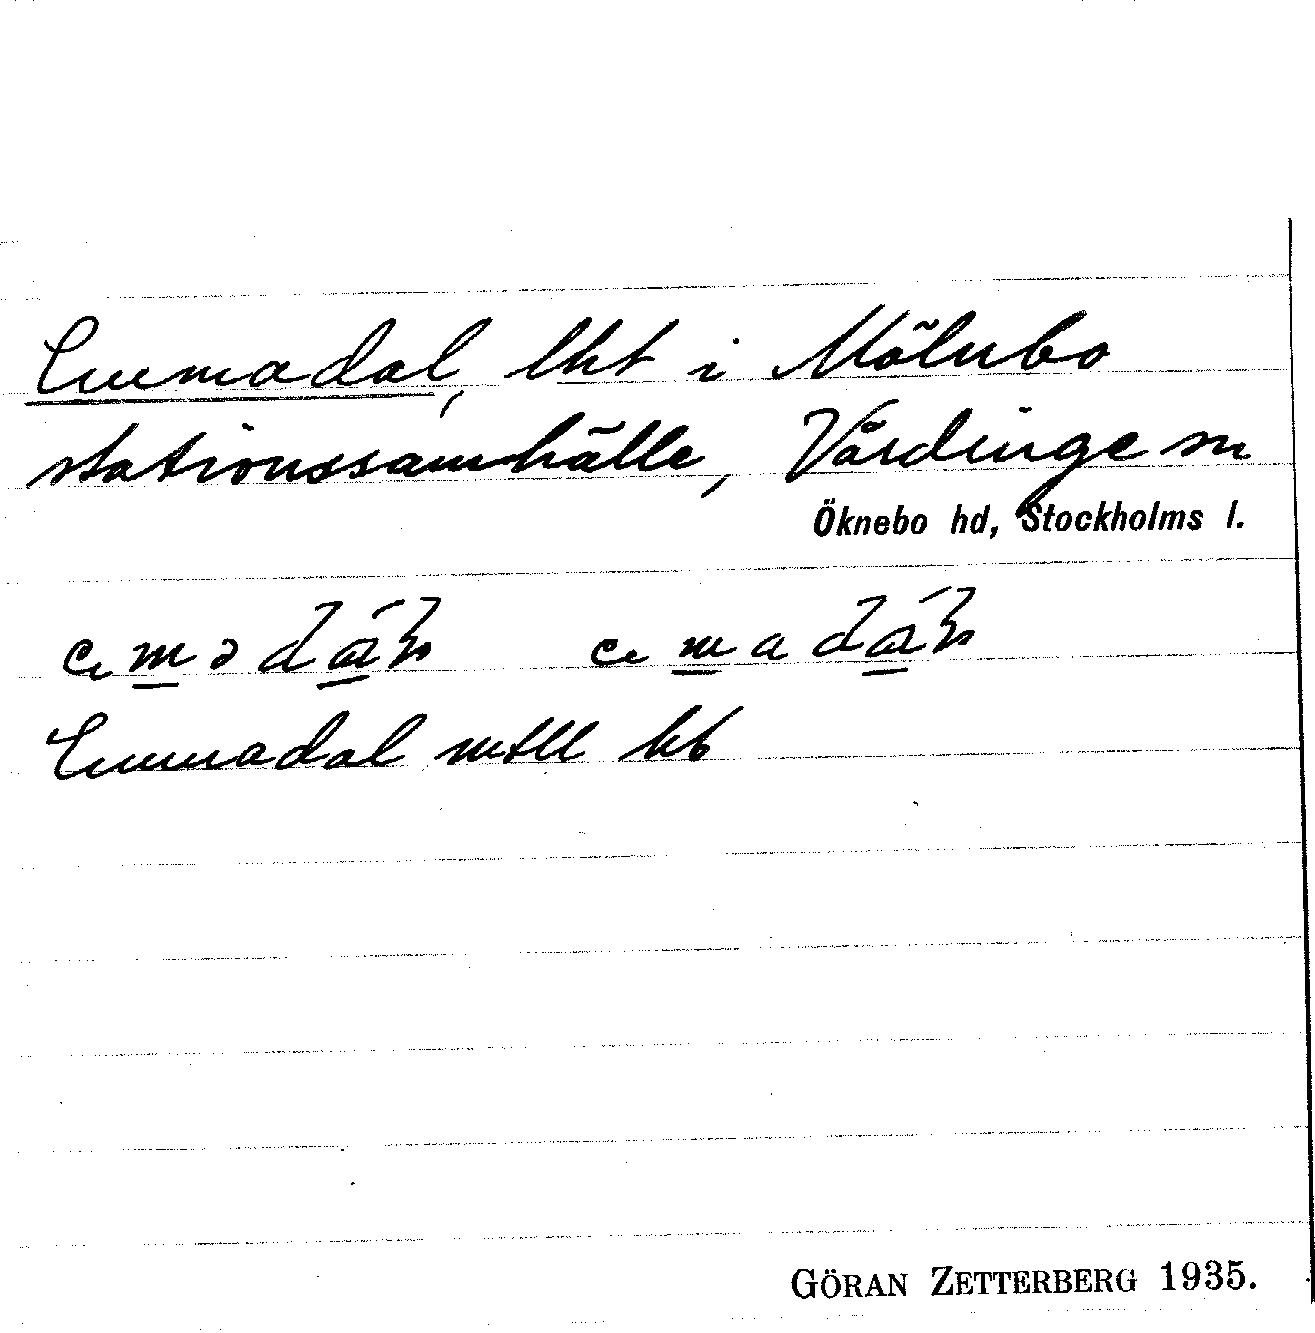 Emmadal, lht i Mölnbo
stationssamhälle, Vårdinge sn
Öknebo hd, Stockholms l.
emədál emadál
Emmadal mtll kb
GÖRAN ZETTERBERG 1935.